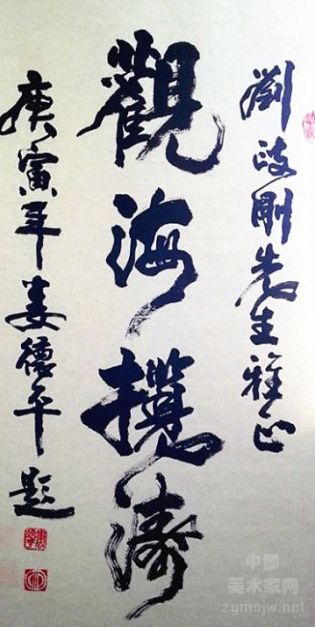 劉政剛先生雅正
觀海攬濤
庚寅年姜德平題
中国
美术家网
zgmsjw.net